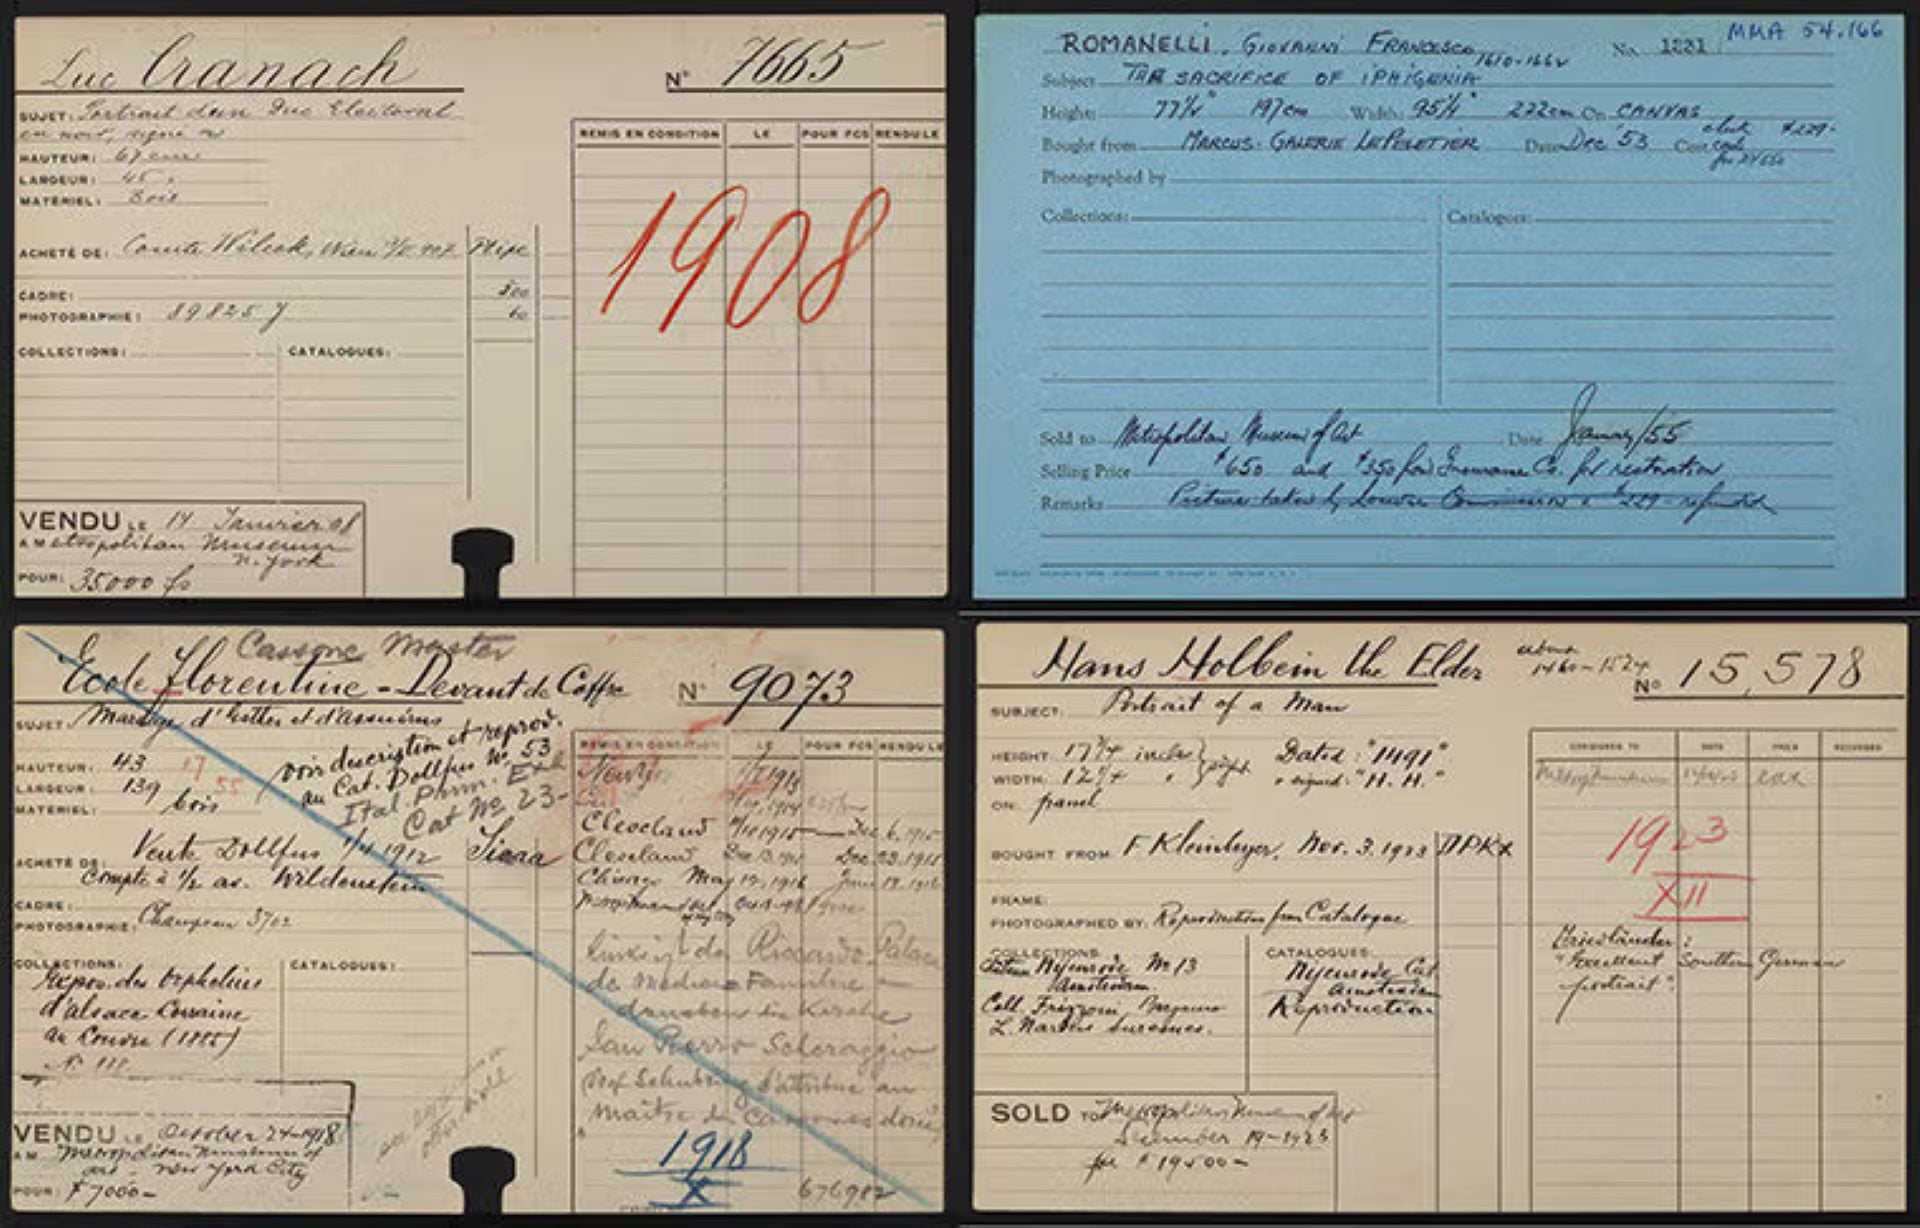 Luc Cranach
N° 7665
SUJET: Portrait d'un Duc Electoral
en noir, signé
HAUTEUR: 67 cm
LARGEUR: 45
MATÉRIEL: Bois
REMIS EN CONDITION LE POUR FCS RENDU LE
1908
ACHETÉ DE: Comte Wilczek, Wien
CADRE: 500
PHOTOGRAPHIE: 89825 60
COLLECTIONS: CATALOGUES:
VENDU LE 14 Janvier 08
A M Metropolitan Museum
N. York
POUR: 35000 fs
ROMANELLI, GIOVANNI FRANCESCO
1610-1662
No. 1231
MMA 54.166
Subject THE SACRIFICE OF IPHIGENIA
Height: 77½" 197cm Width: 95¼" 222cm On CANVAS
Bought from MARCUS-GALERIE LEPELETIER Date Dec '53 Cost $229-
Photographed by
Collections: Catalogues:
Sold to Metropolitan Museum of Art Date January/55
Selling Price $650 and $350 from Insurance Co. for restoration
Remarks Picture taken by Louvre Commission & $229- refunded
Cassone Master
Ecole Florentine - Devant de Coffre
N° 9073
SUJET: Mariage d'Esther et d'Assuérus
HAUTEUR: 43 17
LARGEUR: 139 55
MATÉRIEL: bois
voir description et reprod.
au Cat. Dollfus No. 53
Ital. Prim. Exh
Cat No 23-
ACHETÉ DE: Vente Dollfus 1/4 1912
Compte à ½ av. Wildenstein
CADRE:
PHOTOGRAPHIE: Champeau 3702
COLLECTIONS: CATALOGUES:
Expos. des Orphelins
d'Alsace Lorraine
au Louvre (1885)
N° 111
VENDU LE October 24-1918
A M Metropolitan Museum of
Art - New York City
POUR: $7000-
REMIS EN CONDITION LE POUR FCS RENDU LE
Cleveland Dec 6, 1915
Cleveland Dec. 23. 1915
Chicago May 12, 1916 June 19. 1916
Riccardo Palace
de Medicea Familie -
daneben die Kirche
San Pierro Scheraggio
Prof Schubring l'attribue au
maitre des Cassones
1918
X
676982
Hans Holbein the Elder
1460-1524
No 15,578
SUBJECT: Portrait of a Man
HEIGHT: 17¾ inches Dated: "1491"
WIDTH: 12¾ " signed: "H. H."
ON: panel
BOUGHT FROM F Kleinberger, Nov. 3. 1923 DPKX
FRAME:
PHOTOGRAPHED BY: Reproduction from Catalogue
COLLECTIONS CATALOGUES:
Nyenrode No 13 Nyenrode Cat
Amsterdam Amsterdam
Coll. Frizzoni, Reproduction
L. Nardus Suresnes.
CONSIGNED TO DATE PRICE RETURNED
1923
XII
Friedländer:
"Excellent Southern German
portrait".
SOLD TO Metropolitan Museum of Art
December 19-1923
for $19500-